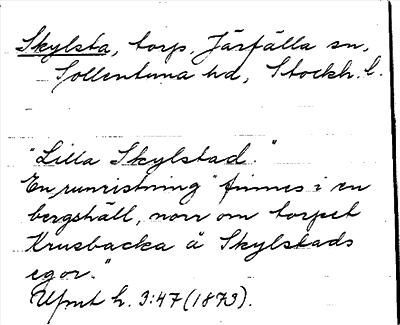 Skylsta, torp, Järfälla sn,
Sollentuna hd, Stockh. l.
"Lilla Skylstad."
En runristning "finnes i en
bergshäll, norr om torpet
Krusbacka å Skylstads
egor."
Ufmt h. 3:47 (1873).